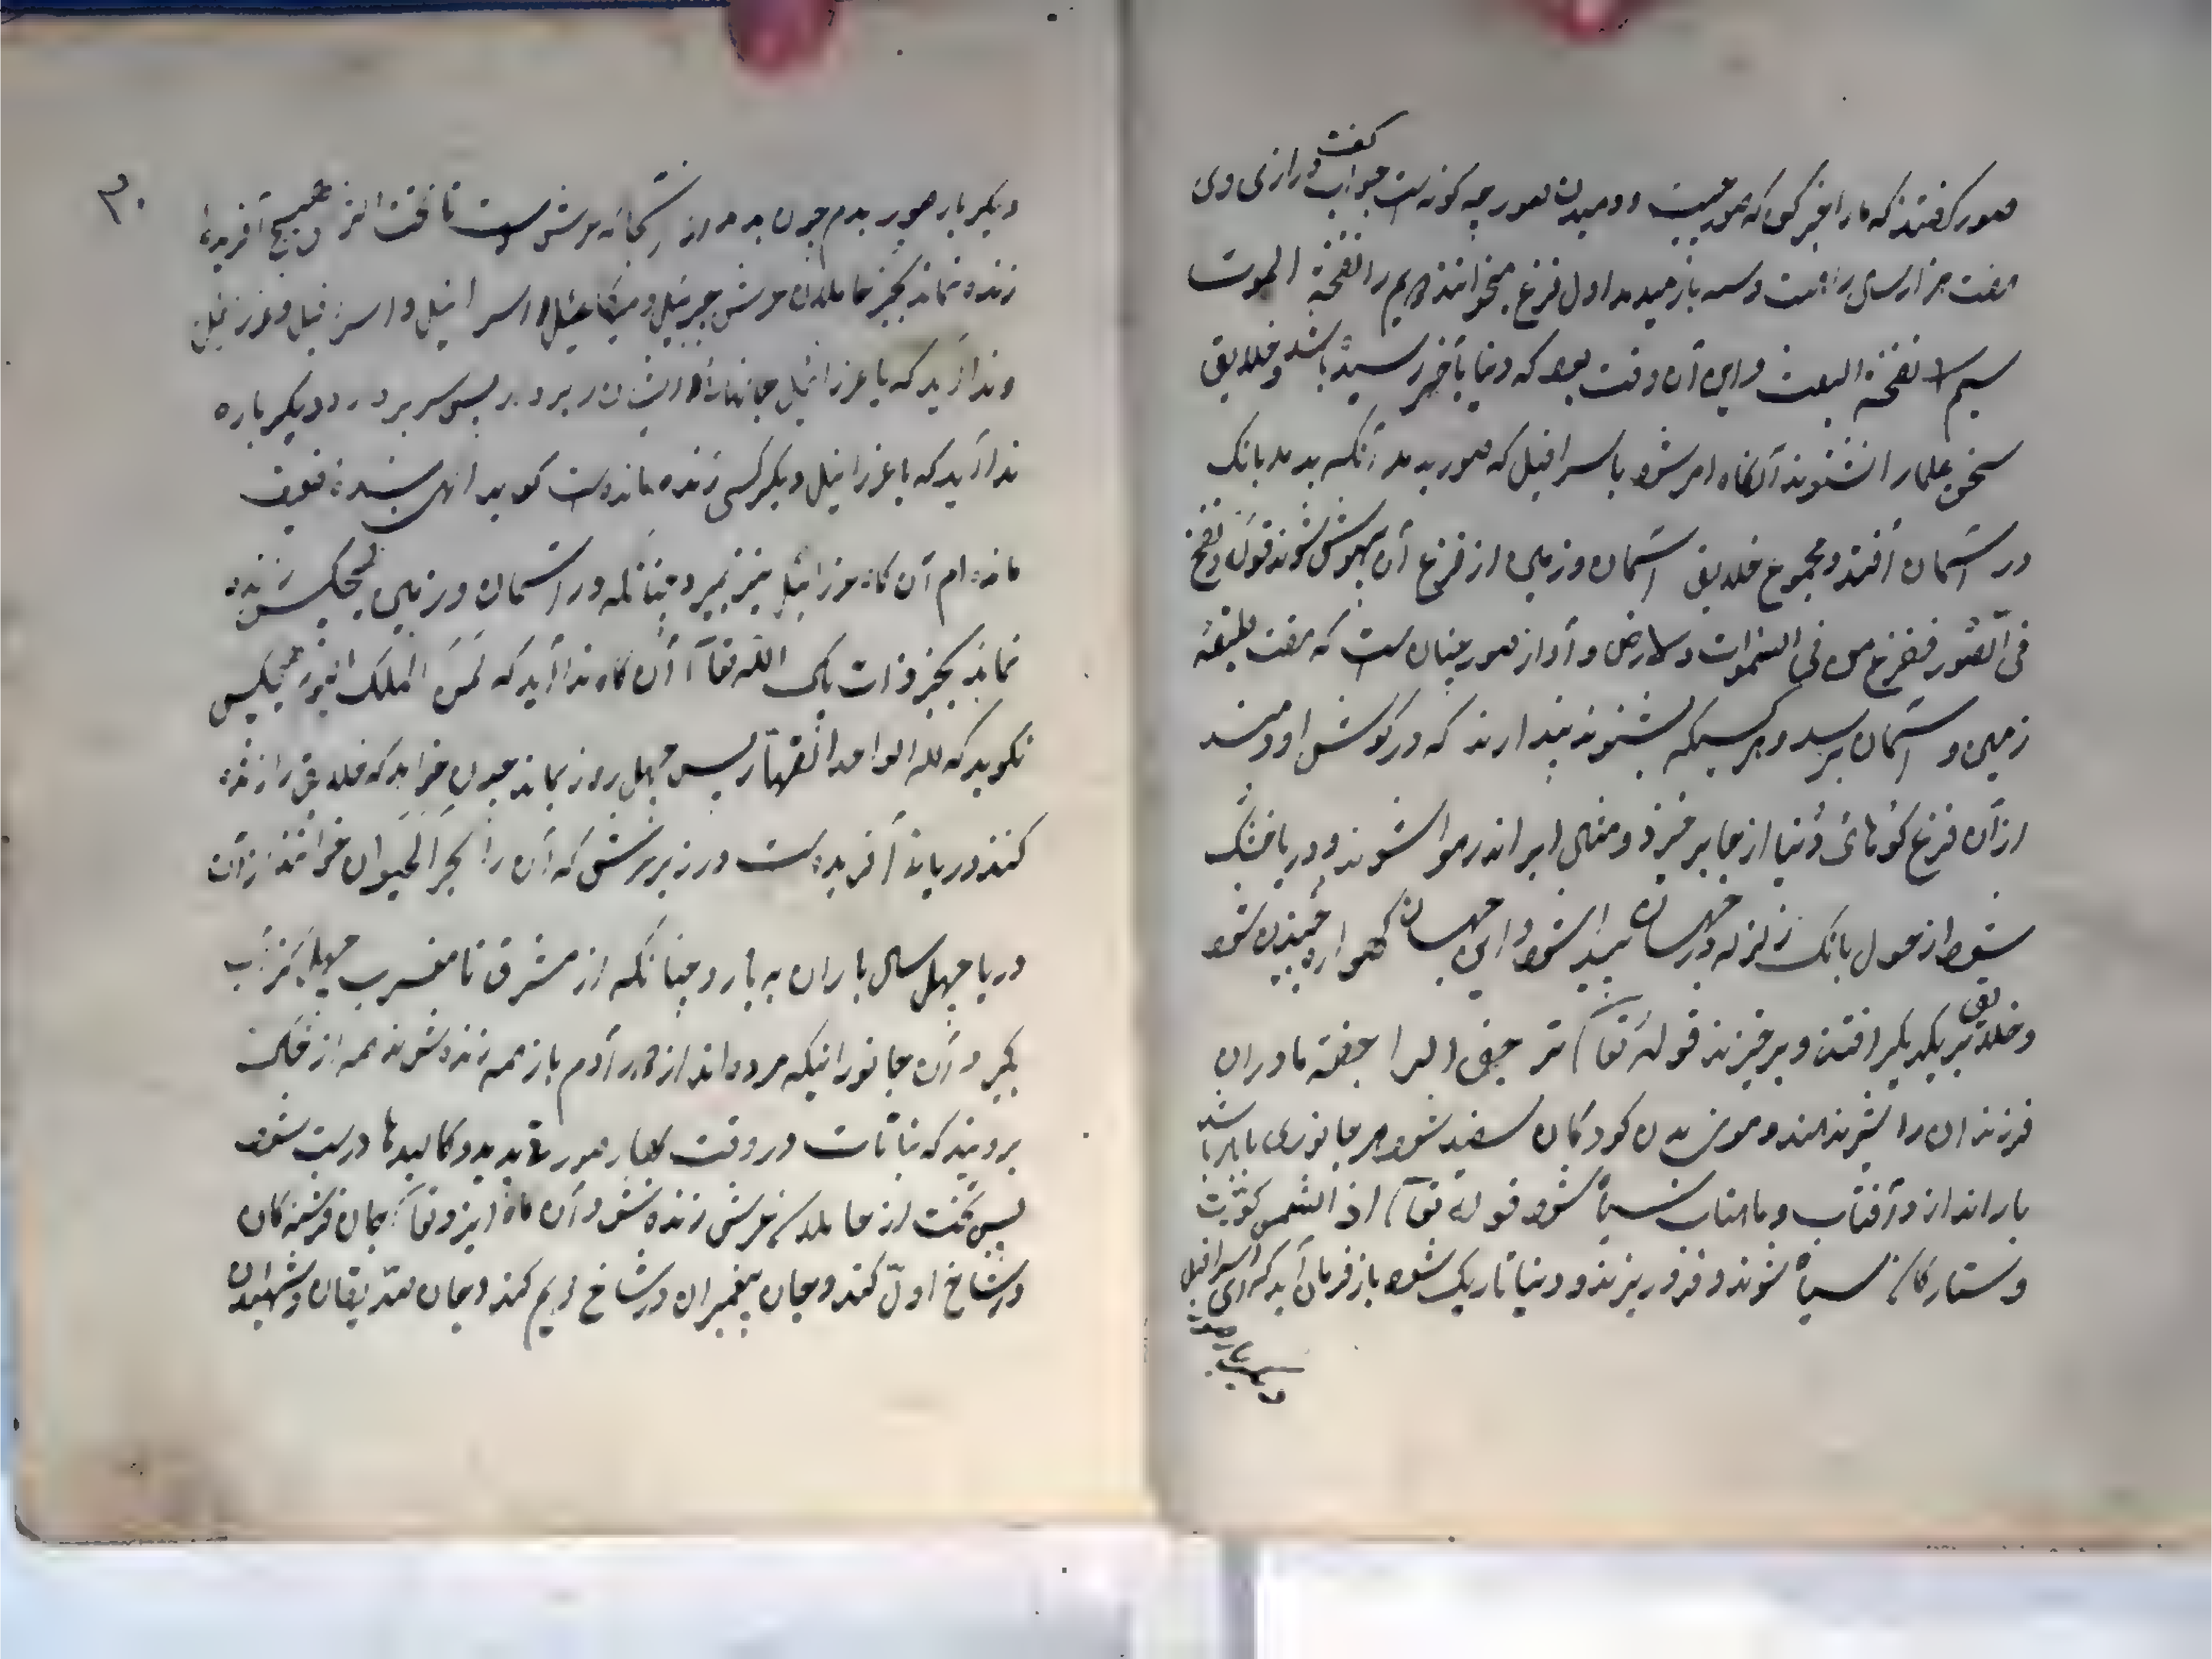 صور کفتند که مارا خبر کوی که صور چیست و دمیدن صور چه کونه است جواب کفت درازی وی
هفت هزار ساله راهست و سه بار میدمد اول فزع میخوانند دویم را نفخة الموت
سیم را نفخة البعث و این آن وقت بود که دنیا بآخر رسیده باشد و خلایق
سخن علما را نشنوند آنکاه امر شود باسرافیل که صور بدمد آنکه بدمد بانک
در آسمان افتد و مجموع خلایق آسمان و زمین از فزع آن بیهوش شوند قوله و نفخ
فی الصور ففزع من فی السموات و الارض و آواز صور چنان است که هفت طبقه
زمین و آسمان برسد و هر کسیکه بشنوند پندارند که در کوش او دمند
از آن فزع کوهای دنیا از جا بر خیزد و مثل ابر اندر هوا شوند و دریا خشک
شود از هول بانک زلزله در جهان پیدا شود و این جهان کهواره جنبیدن شود
و خلایق بر یکدیکر افتند و برخیزند قوله تعا ترجف الراجفة مادران
فرزندان را شیر ندهند و موی سر کودکان سفید شود هر جانوری بابر باشد
بار اندازد و آفتاب و ماهتاب سیاه شود قوله تعا اذ الشمس کورت
و ستارکان سیاه شوند و فرو ریزند و دنیا تاریک شود باز فرمان آید که ای اسرافیل
دیکر بار صور
۳۰
دیکر بار صور بدم چون بدمد از آنجا که عرش است تا تحت الثری هیچ آفریده
زنده نماند بجز حاملان عرش جبرئیل و میکائیل و اسرافیل و عزرائیل
و ندا آید که یا عزرائیل جانهای ایشان بردار پس بردارد دیکر باره
ندا آید که یا عزرائیل دیکر کسی زنده مانده است کوید الهی بنده ضعیف
مانده ام آن کاه عزرائیل نیز بمیرد چنانکه در آسمان و زمین هیچکس زنده
نماند بجز ذات پاک الله تعا آن کاه ندا آید که لمن الملک الیوم هیچکس
نکوید که لله الواحد القهار پس چهل روز بماند چون خواهد که خلایق را زنده
کند دریای آفریده است در زیر عرش که آن را بحر الحیوان خوانند از آن
دریا چهل سال باران به بارد چنانکه از مشرق تا مغرب چهل کز آب
بکیرد آن جانورانیکه مرده اند از دور آدم باز همه زنده شوند همه از خاک
برویند که نباتات در وقت بهار صورت پدید و کالبدها درست شود
پس نخست از حاملان عرش زنده شود آن کاه ایزد تعا جان فرشته کان
در شاخ اول کند و جان پیغمبران در شاخ دویم کند و جان صدیقان و شهیدان